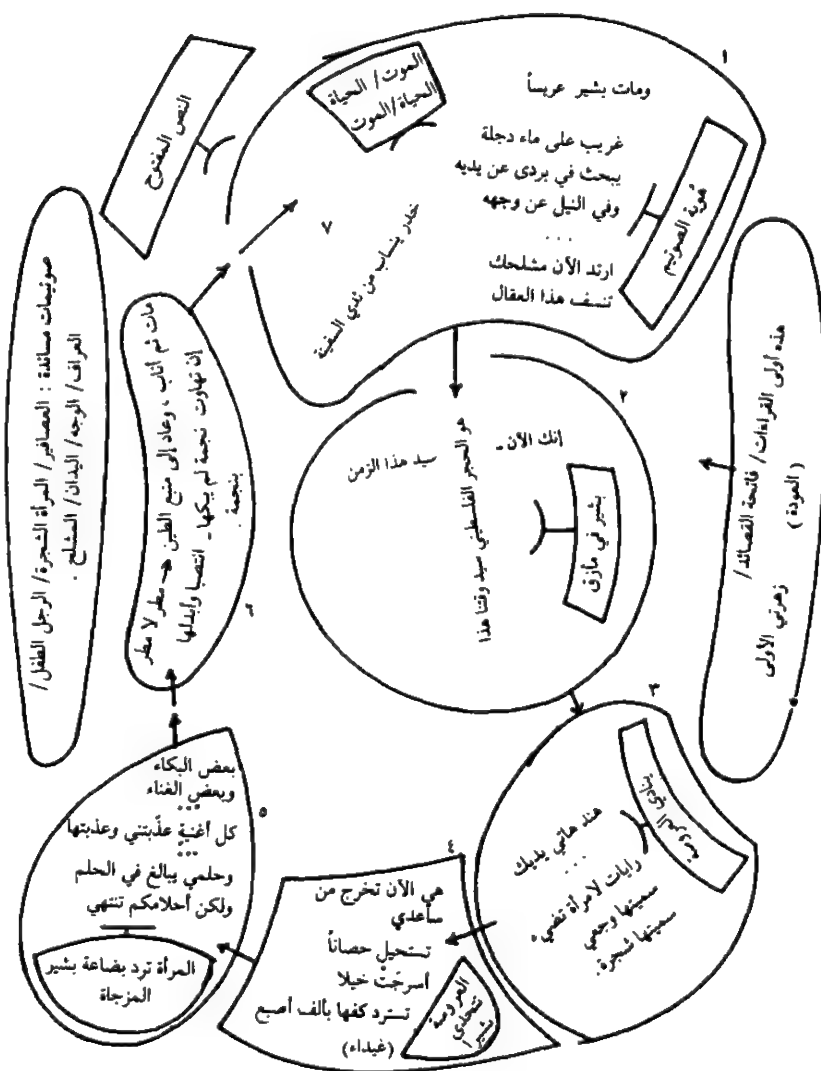 ١
ومات بشير عريساً
غريب على ماء دجلة
يبحث في بردى عن يديه
وفي النيل عن وجهه
. . .
ارتد الآن مشلحك
تنسف هذا العقال
هوية الصوتيم
الموت / الحياة
الحياة / الموت
٧
خدر ينساب من ثدي السفينة
النص المفتوح
هذه أولى القراءات / فاتحة القصائد /
زهرتي الأولى
( العودة )
٢
إنك الآن ـ
هو الحجر الفلسطيني سيد وقتنا هذا
سيد هذا الزمن
بشير في مأزق
٣
ينادي العروسة
هند هاتي يديك
. . .
رايات لامرأة تضيء
سميتها وجعي
سميتها شجرة.
٤
هي الآن تخرج من
ساعدي
تستحيل حصاناً
أسرجت خيلا
تسترد كفها بألف أصبع
(غيداء)
العروسة
تتحدى
بشيرا
٥
بعض البكاء
وبعض الغناء
. . .
كل أغنية عذّبتني وعذبتها
. . .
وحلمي يبالغ في الحلم
ولكن أحلامكم تنتهي
المرأة ترد بضاعة بشير
المزجاة
مات ثم أناب ، وعاد إلى منبع الطين ← مطر لا مطر
إن تهاوت نجمة لم يبكها ـ انتصبا وأبدلها
بنجمة .
صوتيمات مساندة : العصافير / المرأة الشجرة / الرجل الطفل /
العراف / الوجه / اليدان / المشلح .